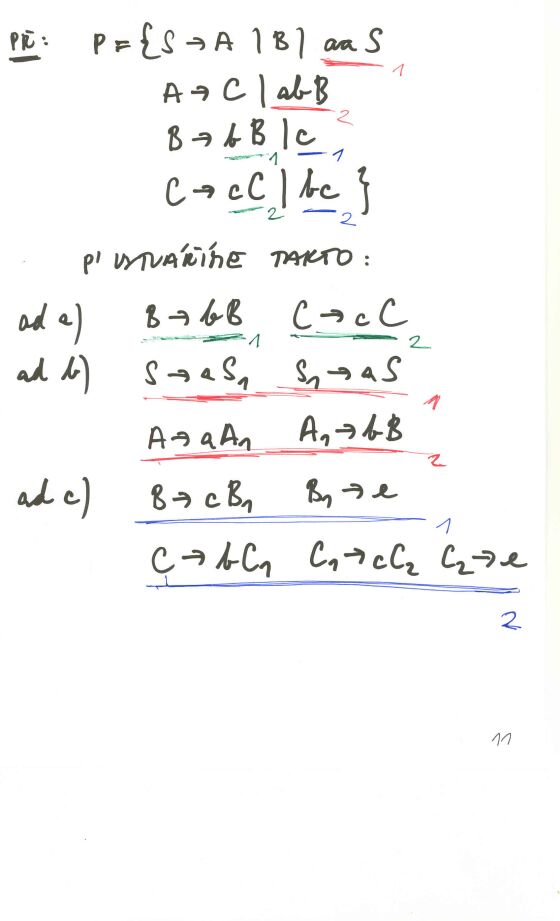 PŘ: P = { S → A | B | aaS
1
A → C | abB
2
B → bB | c
1 1
C → cC | bc }
2 2
P' VYTVÁŘÍME TAKTO:
ad a) B → bB C → cC
1 2
ad b) S → aS₁ S₁ → aS
1
A → aA₁ A₁ → bB
2
ad c) B → cB₁ B₁ → e
1
C → bC₁ C₁ → cC₂ C₂ → e
2
11